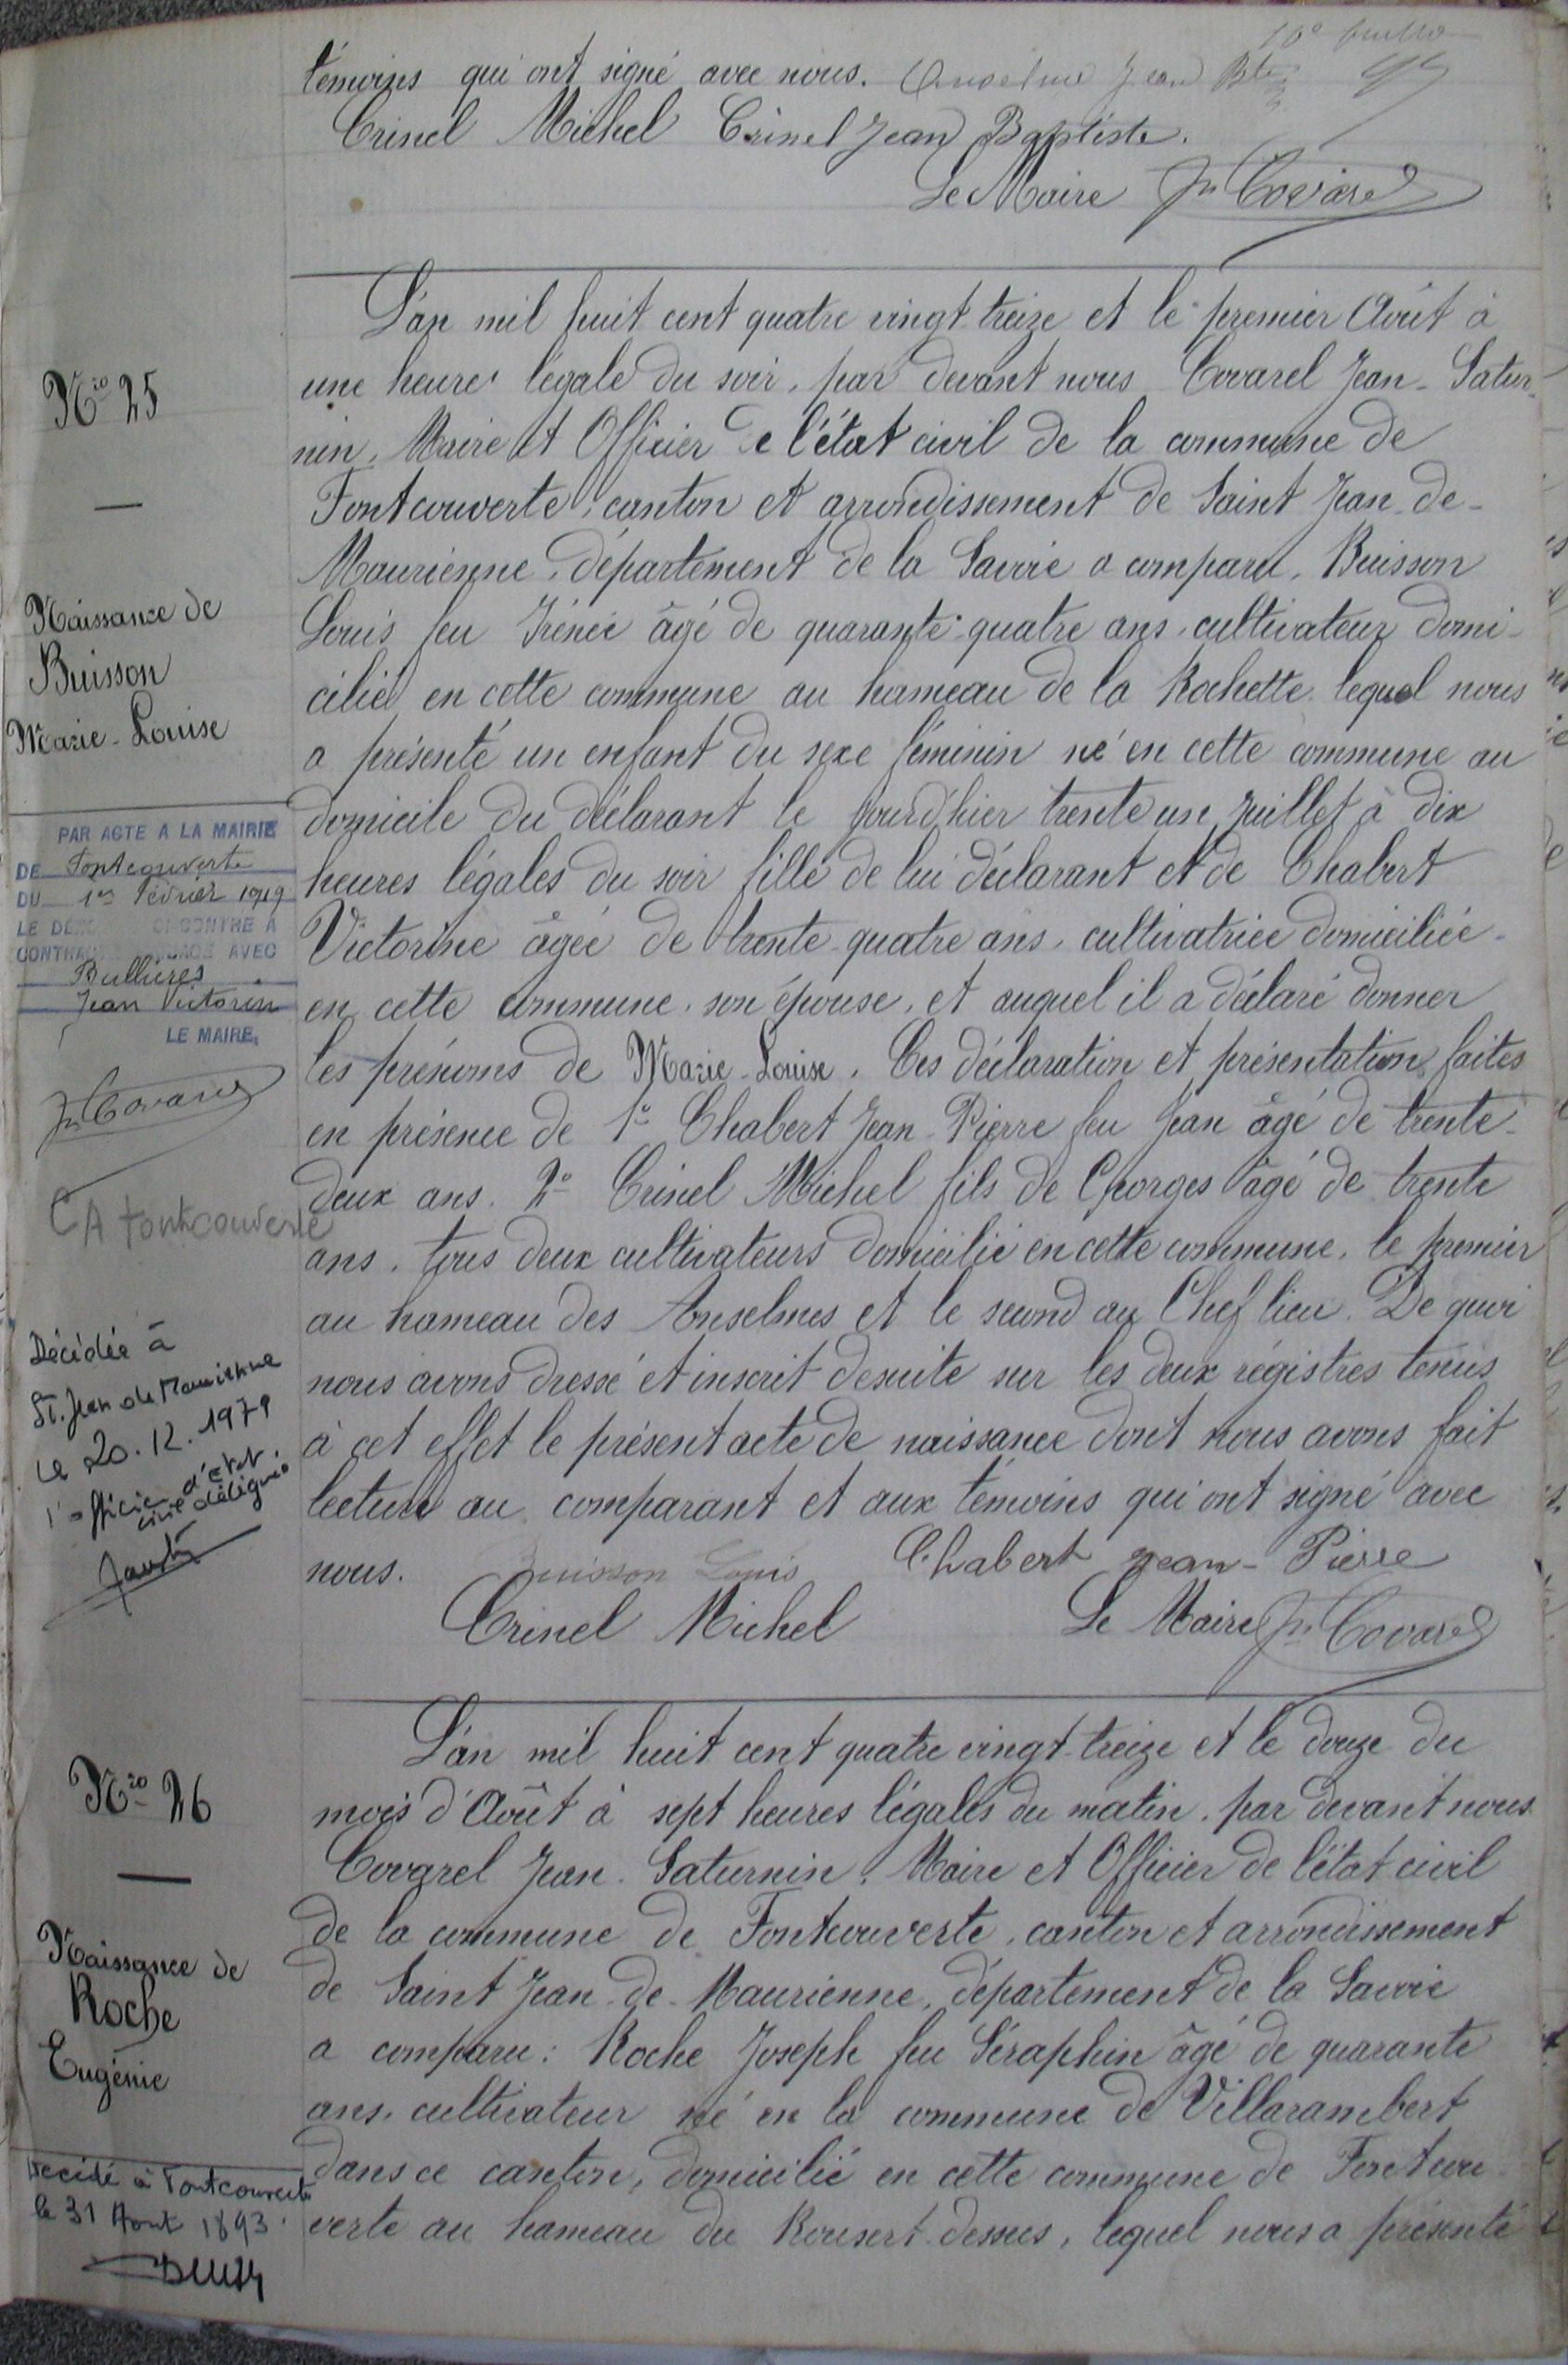 10e
témoins qui ont signé avec nous. Anselme Jean Bte
Crinel Michel Crinel Jean Baptiste.
Le Maire Jn Covarel
Nro 25
Naissance de
Buisson
Marie-Louise
PAR ACTE A LA MAIRIE
DE Fontcouverte
DU 1er Février 1919
LE CONTRE A
AVEC
Bullières
Jean Victorin
LE MAIRE,
Jn Covarel
CA fontcouverte
Décédée à
St. Jean de Maurienne
le 20.12.1979
l'officier d'état
civil délégué
L'an mil huit cent quatre vingt treize et le premier Août à
une heure légale du soir, par devant nous Covarel Jean-Satur-
nin, Maire et Officier de l'état civil de la commune de
Fontcouverte, canton et arrondissement de Saint Jean-de-
Maurienne, département de la Savoie a comparu, Buisson
Louis feu Irénée âgé de quarante-quatre ans, cultivateur domi-
cilié en cette commune au hameau de la Rochette lequel nous
a présenté un enfant du sexe féminin né en cette commune au
domicile du déclarant le jourd'hier trente un juillet à dix
heures légales du soir fille de lui déclarant et de Chabert
Victorine âgée de trente-quatre ans, cultivatrice domiciliée
en cette commune, son épouse, et auquel il a déclaré donner
les prénoms de Marie-Louise. Ces déclaration et présentation faites
en présence de 1o Chabert Jean-Pierre feu Jean âgé de trente-
deux ans. 2o Crinel Michel fils de Georges âgé de trente
ans, tous deux cultivateurs domicilié en cette commune, le premier
au hameau des Anselmes et le second au Chef lieu. De quoi
nous avons dressé et inscrit desuite sur les deux régistres tenus
à cet effet le présent acte de naissance dont nous avons fait
lecture au comparant et aux témoins qui ont signé avec
nous. Buisson Louis Chabert Jean-Pierre
Crinel Michel Le Maire Jn Covarel
Nro 26
Naissance de
Roche
Eugénie
Décédé à Fontcouverte
le 31 Août 1893.
L'an mil huit cent quatre vingt-treize et le douze du
mois d'Août à sept heures légales du matin, par devant nous
Covarel Jean-Saturnin, Maire et Officier de l'état civil
de la commune de Fontcouverte, canton et arrondissement
de Saint Jean-de-Maurienne, département de la Savoie
a comparu: Roche Joseph feu Séraphin âgé de quarante
ans, cultivateur né en la commune de Villarambert
dans ce canton, domicilié en cette commune de Fontcou-
verte au hameau du Rousert-dessus, lequel nous a présenté